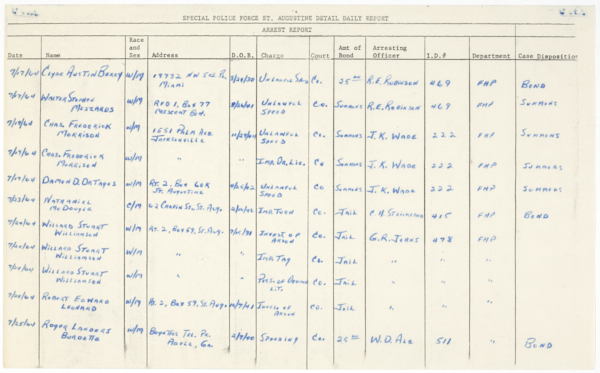 SPECIAL POLICE FORCE ST. AUGUSTINE DETAIL DAILY REPORT
ARREST REPORT
Date Name Race and Sex Address D.O.B. Charge Court Amt of Bond Arresting Officer I.D.# Department Case Disposition
7/17/64 Clyde Austin W/M 19732 NW 5 Miami Unlawful Speed Co. 25 00 R.E. Robinson 469 FHP Bond
7/17/64 Walter W/M Rfd 1, Box 77 Crescent Unlawful Speed Co. Summons R.E. Robinson 469 FHP Summons
Chas. Frederick Morrison W/M 1651 Palm Ave Jacksonville Unlawful Speed Co. Summons J.K. Wade 222 FHP Summons
Chas. Frederick Morrison W/M " " Imp. Dr. Lic. Co Summons J.K. Wade 222 FHP Summons
Damon D. W/M Rt. 2, Box 60K St. Augustine Unlawful Speed Co. Summons J.K. Wade 222 FHP Summons
7/23/64 Nathaniel C/M 62 Chapin St., St. Aug. Co. Jail 415 FHP Bond
7/24/64 Willard Stuart Williamson W/M Rt. 2, Box 69, St. Aug. Invest of Arson Co. Jail G.R. Jones 478 FHP
Willard Stuart Williamson W/M " Co. Jail " "
Willard Stuart Williamson W/M " Co. Jail "
Robert Edward Leonard W/M Rt. 2, Box 59, St. Aug Invest of Arson Co. Jail " "
7/25/64 Roger Landers Burdette W/M Tr. Pk. Adele, Ga. Speeding Co. 25 00 W.D. 511 Bond